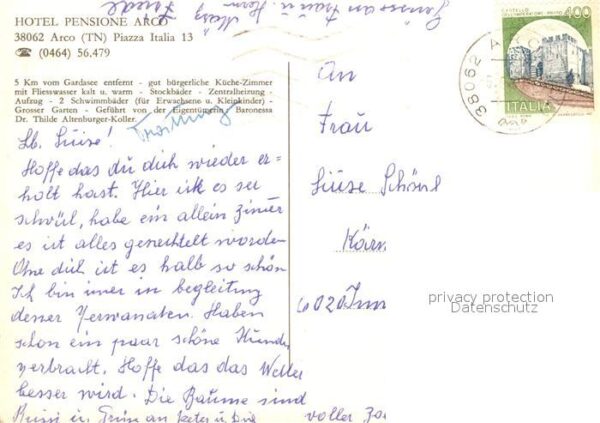 HOTEL PENSIONE ARCO
38062 Arco (TN) Piazza Italia 13
☎ (0464) 56,479
5 Km vom Gardasee entfernt - gut bürgerliche Küche-Zimmer
mit Fliesswasser kalt u. warm - Stockbäder - Zentralheizung -
Aufzug - 2 Schwimmbäder (für Erwachsene u. Kleinkinder) -
Grosser Garten - Geführt von der Eigentümerin Baronessa
Dr. Thilde Altenburger-Koller.
Lb. Luise!
Hoffe das du dich wieder er-
holt hast. Hier ist es ser
schwül, habe ein allein zimer
es ist alles gewechtelt worden
Ohne dich ist es halb so schön
Ich bin imer in begleitung
deiner Verwanaten. Haben
schon ein paar schöne Stunden
verbracht. Hoffe das das Wetter
besser wird. Die Bäume sind
voller
An
Frau
Luise
Kärn
6020 Inn
CASTELLO
400
ITALIA
38062 A
privacy protection
Datenschutz